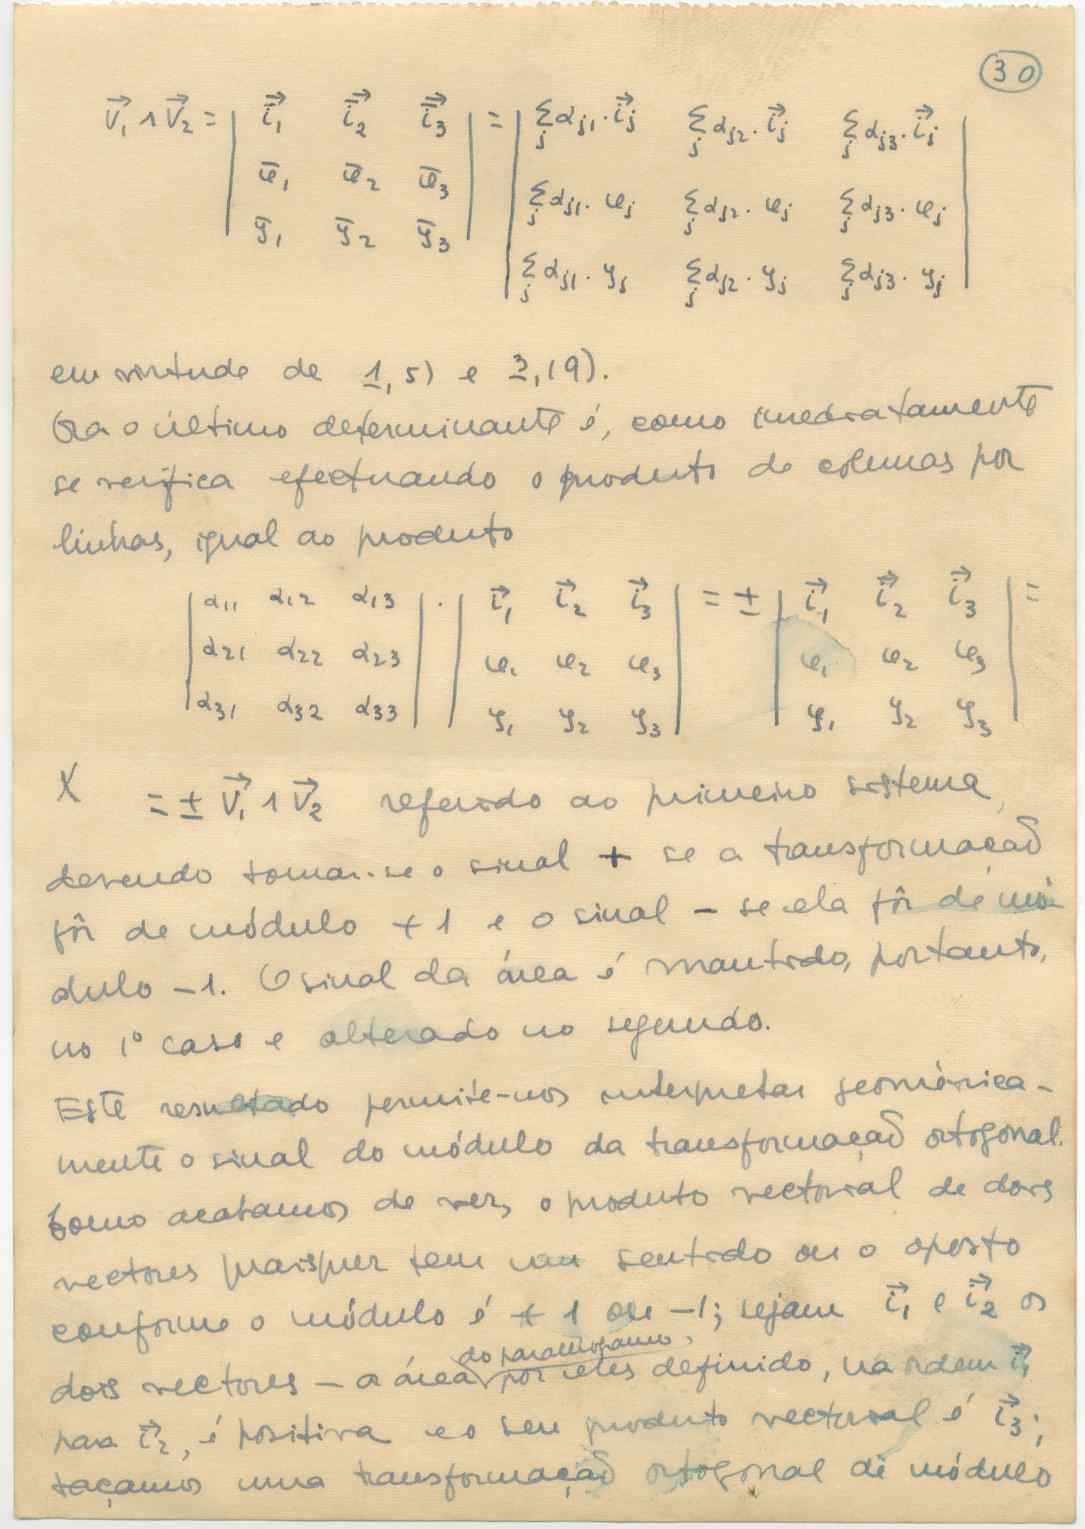 30
V⃗₁ ∧ V⃗₂ = | i⃗₁ i⃗₂ i⃗₃ | = | Σⱼ αⱼ₁·i⃗ⱼ Σⱼ αⱼ₂·i⃗ⱼ Σⱼ αⱼ₃·i⃗ⱼ |
| φ̄₁ φ̄₂ φ̄₃ | | Σⱼ αⱼ₁·φⱼ Σⱼ αⱼ₂·φⱼ Σⱼ αⱼ₃·φⱼ |
| ȳ₁ ȳ₂ ȳ₃ | | Σⱼ αⱼ₁·yⱼ Σⱼ αⱼ₂·yⱼ Σⱼ αⱼ₃·yⱼ |
em virtude de 1, 5) e 2, 19).
Ora o último determinante é, como imediatamente
se verifica efectuando o produto de colunas por
linhas, igual ao produto
| α₁₁ α₁₂ α₁₃ | · | i⃗₁ i⃗₂ i⃗₃ | = ± | i⃗₁ i⃗₂ i⃗₃ | =
| α₂₁ α₂₂ α₂₃ | | φ₁ φ₂ φ₃ | | φ₁ φ₂ φ₃ |
| α₃₁ α₃₂ α₃₃ | | y₁ y₂ y₃ | | y₁ y₂ y₃ |
X = ± V⃗₁ ∧ V⃗₂ referido ao primeiro sistema,
devendo tomar-se o sinal + se a transformação
fôr de módulo + 1 e o sinal – se ela fôr de mó-
dulo – 1. O sinal da área é mantido, portanto,
no 1º caso e alterado no segundo.
Este resultado permite-nos interpretar geométrica-
mente o sinal do módulo da transformação ortogonal.
Como acabamos de ver, o produto vectorial de dois
vectores quaisquer tem um sentido ou o oposto
conforme o módulo é + 1 ou – 1; sejam i⃗₁ e i⃗₂ os
dois vectores – a área do paralelogramo por eles definido, na ordem i⃗₁
para i⃗₂, é positiva e o seu produto vectorial é i⃗₃;
façamos uma transformação ortogonal de módulo